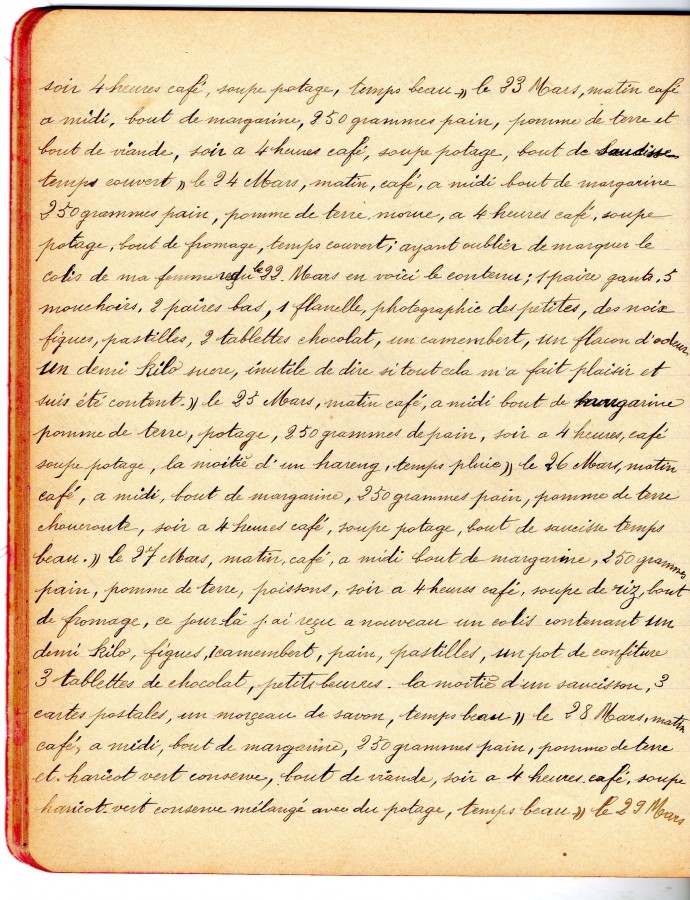 soir 4 heures café, soupe potage, temps beau » le 23 Mars, matin café
a midi, bout de margarine, 250 grammes pain, pomme de terre et
bout de viande, soir a 4 heures café, soupe potage, bout de saucisse
temps couvert » le 24 Mars, matin, café, a midi bout de margarine
250 grammes pain, pomme de terre morue, a 4 heures café, soupe
potage, bout de fromage, temps couvert; ayant oublier de marquer le
colis de ma femme reçu le 22 Mars en voici le contenu; 1 paire gants, 5
mouchoirs, 2 paires bas, 1 flanelle, photographie des petites, des noix
figues, pastilles, 2 tablettes chocolat, un camembert, un flacon d'odeur
un demi kilo sucre, inutile de dire si tout cela m'a fait plaisir et
suis été content. » le 25 Mars, matin café, a midi bout de margarine
pomme de terre, potage, 250 grammes de pain, soir a 4 heures, café
soupe potage, la moitié d'un hareng, temps pluie » le 26 Mars, matin
café, a midi, bout de margarine, 250 grammes pain, pomme de terre
choucroute, soir a 4 heures café, soupe potage, bout de saucisse temps
beau. » le 27 Mars, matin, café, a midi bout de margarine, 250 grammes
pain, pomme de terre, poissons, soir a 4 heures café, soupe de riz, bout
de fromage, ce jour-là j'ai reçu a nouveau un colis contenant un
demi kilo, figues, 1 camembert, pain, pastilles, un pot de confiture
3 tablettes de chocolat, petits-beurres. la moitié d'un saucisson, 3
cartes postales, un morçeau de savon, temps beau » le 28 Mars, matin
café, a midi, bout de margarine, 250 grammes pain, pomme de terre
et haricot vert conserve, bout de viande, soir a 4 heures café, soupe
haricot-vert conserve mélangé avec du potage, temps beau » le 29 Mars